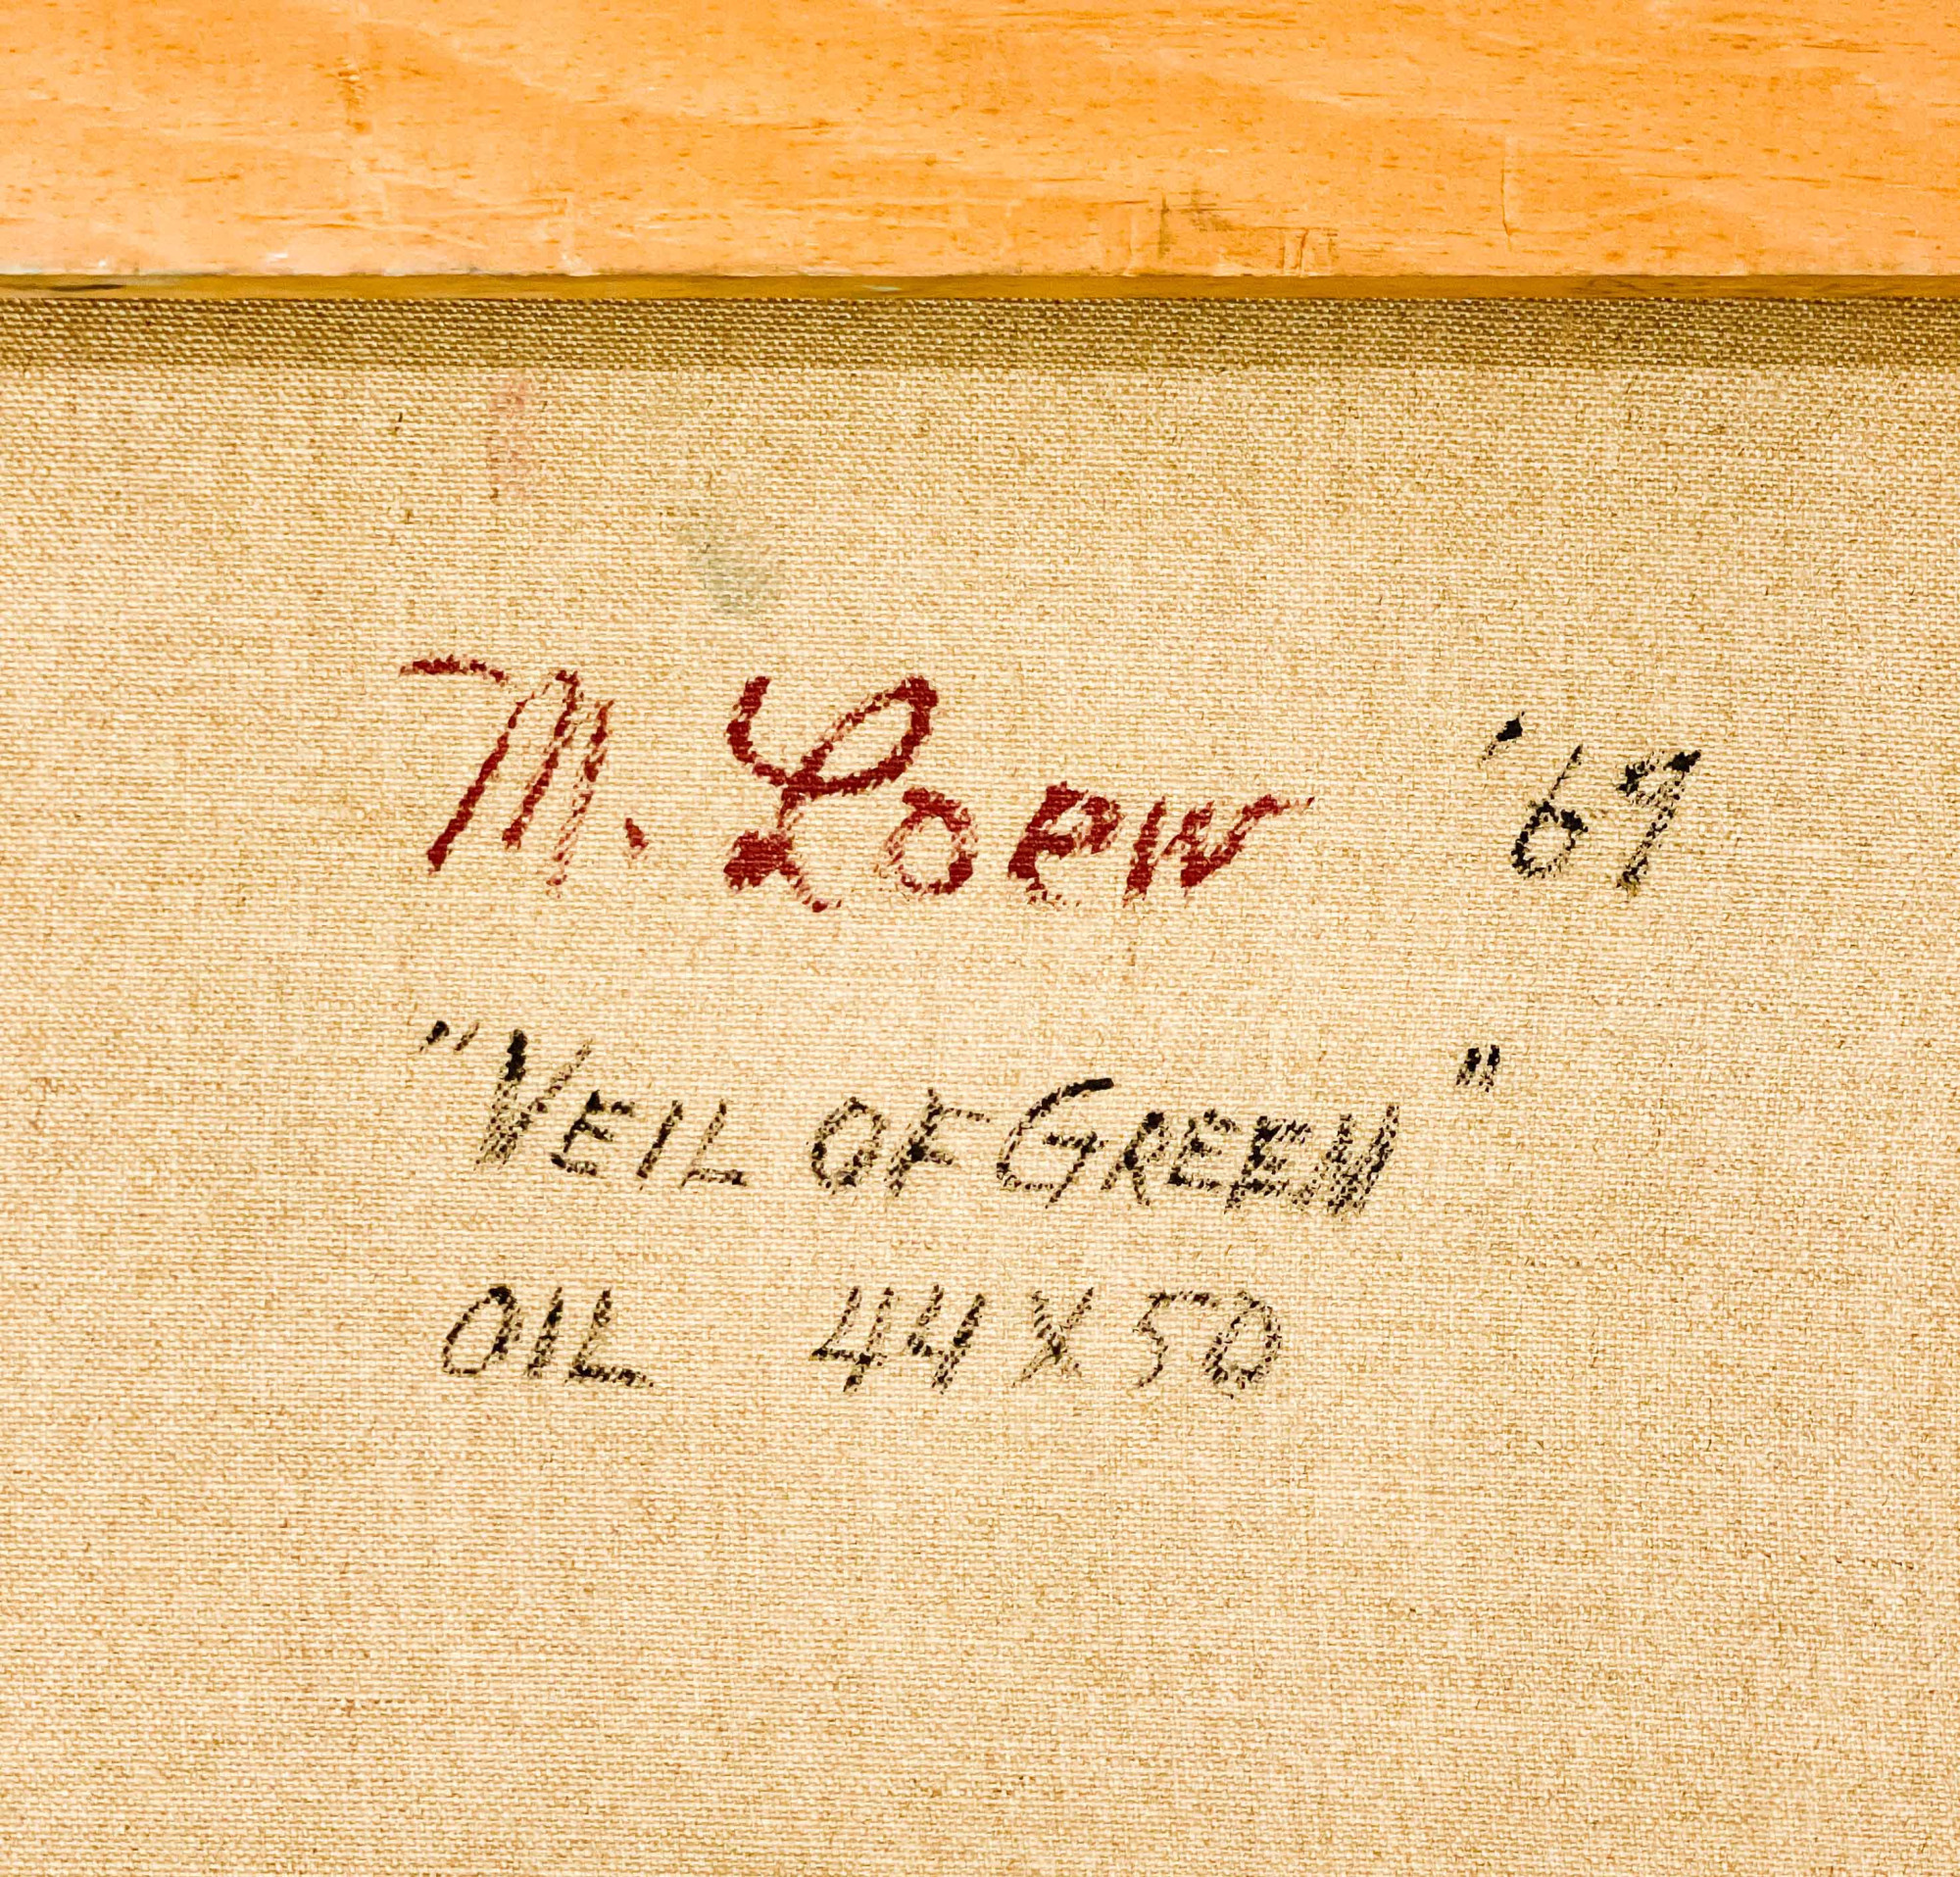 M. Loew '69
"VEIL OF GREEN"
OIL 44 X 50